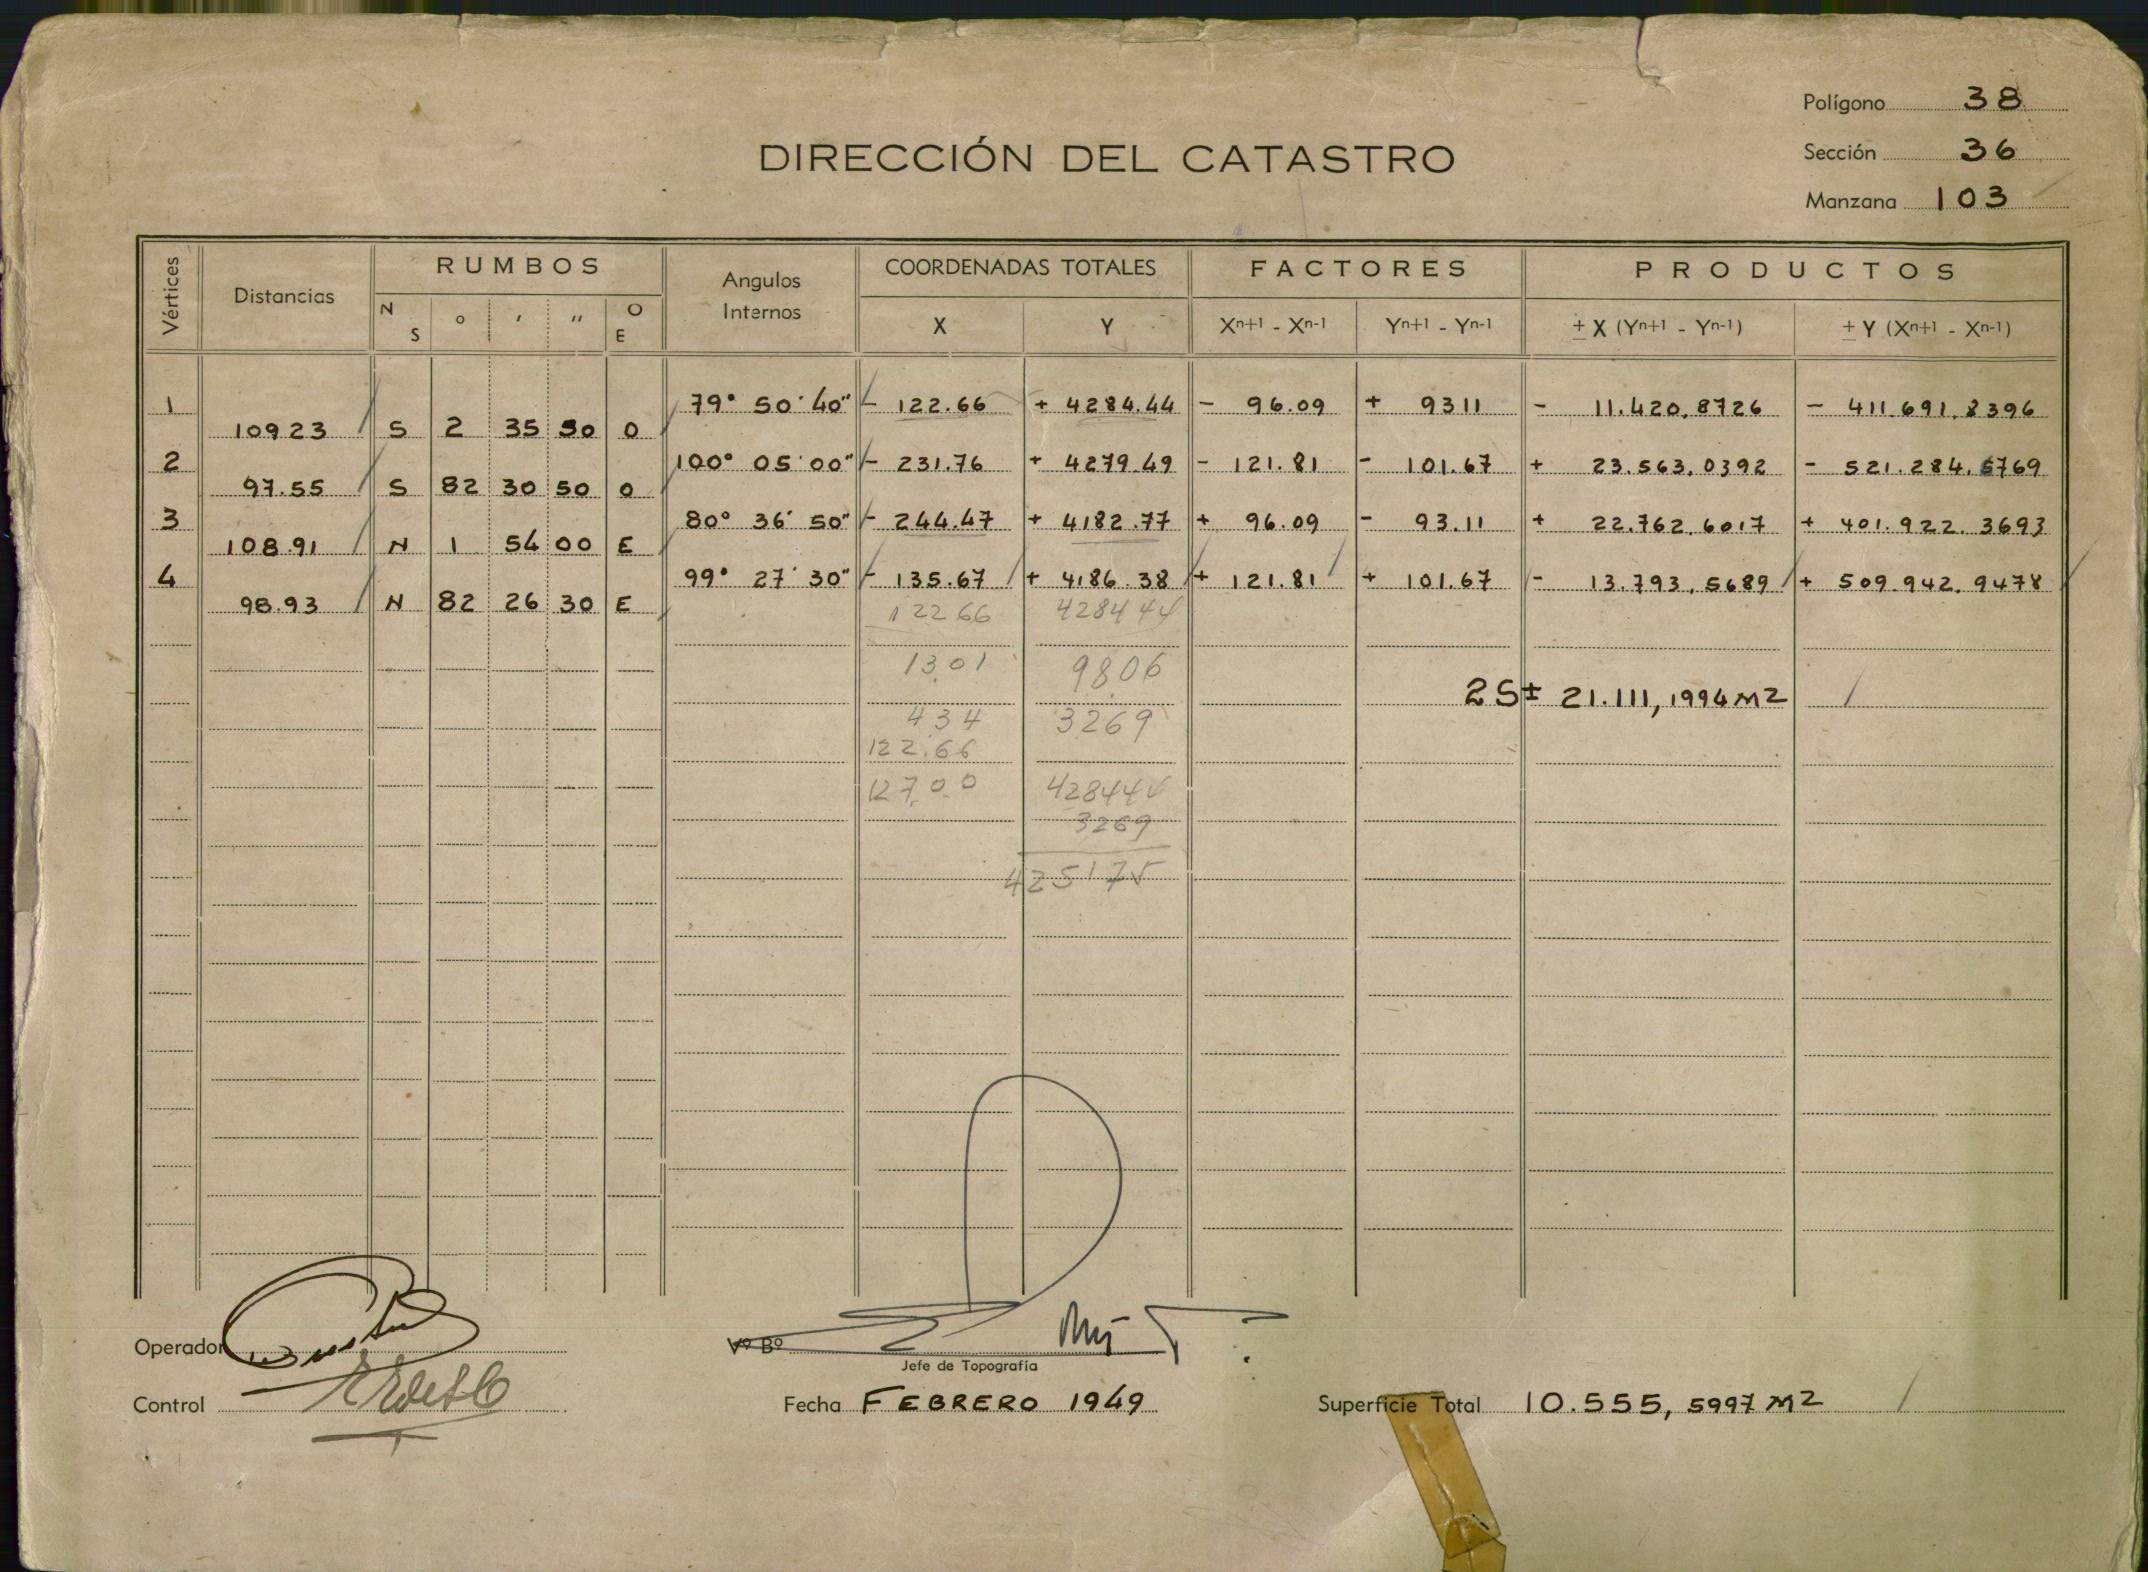 Polígono 38
DIRECCIÓN DEL CATASTRO
Sección 36
Manzana 103
Vértices Distancias RUMBOS Angulos Internos COORDENADAS TOTALES FACTORES PRODUCTOS
N S ° ' " O E X Y Xn+1 - Xn-1 Yn+1 - Yn-1 ± X (Yn+1 - Yn-1) ± Y (Xn+1 - Xn-1)
1 79° 50' 40" - 122.66 + 4284.44 - 96.09 + 9311 - 11.420,8726 - 411.691,8396
10923 S 2 35 50 O
2 100° 05' 00" - 231.76 + 4279.49 - 121.81 - 101.67 + 23.563,0392 - 521.284,6769
97.55 S 82 30 50 O
3 80° 36' 50" - 244.47 + 4182.77 + 96.09 - 93.11 + 22.762,6017 + 401.922,3693
108.91 N 1 54 00 E
4 99° 27' 30" - 135.67 + 4186.38 + 121.81 + 101.67 - 13.793,5689 + 509.942,9478
98.93 N 82 26 30 E
122 66 428444
13.01 98.06
2S± 21.111,1994 M2
4 34 3269
122.66
127.00 428444
3269
425175
Operador
Vº Bº
Jefe de Topografía
Control
Fecha FEBRERO 1949
Superficie Total 10.555,5997 M2